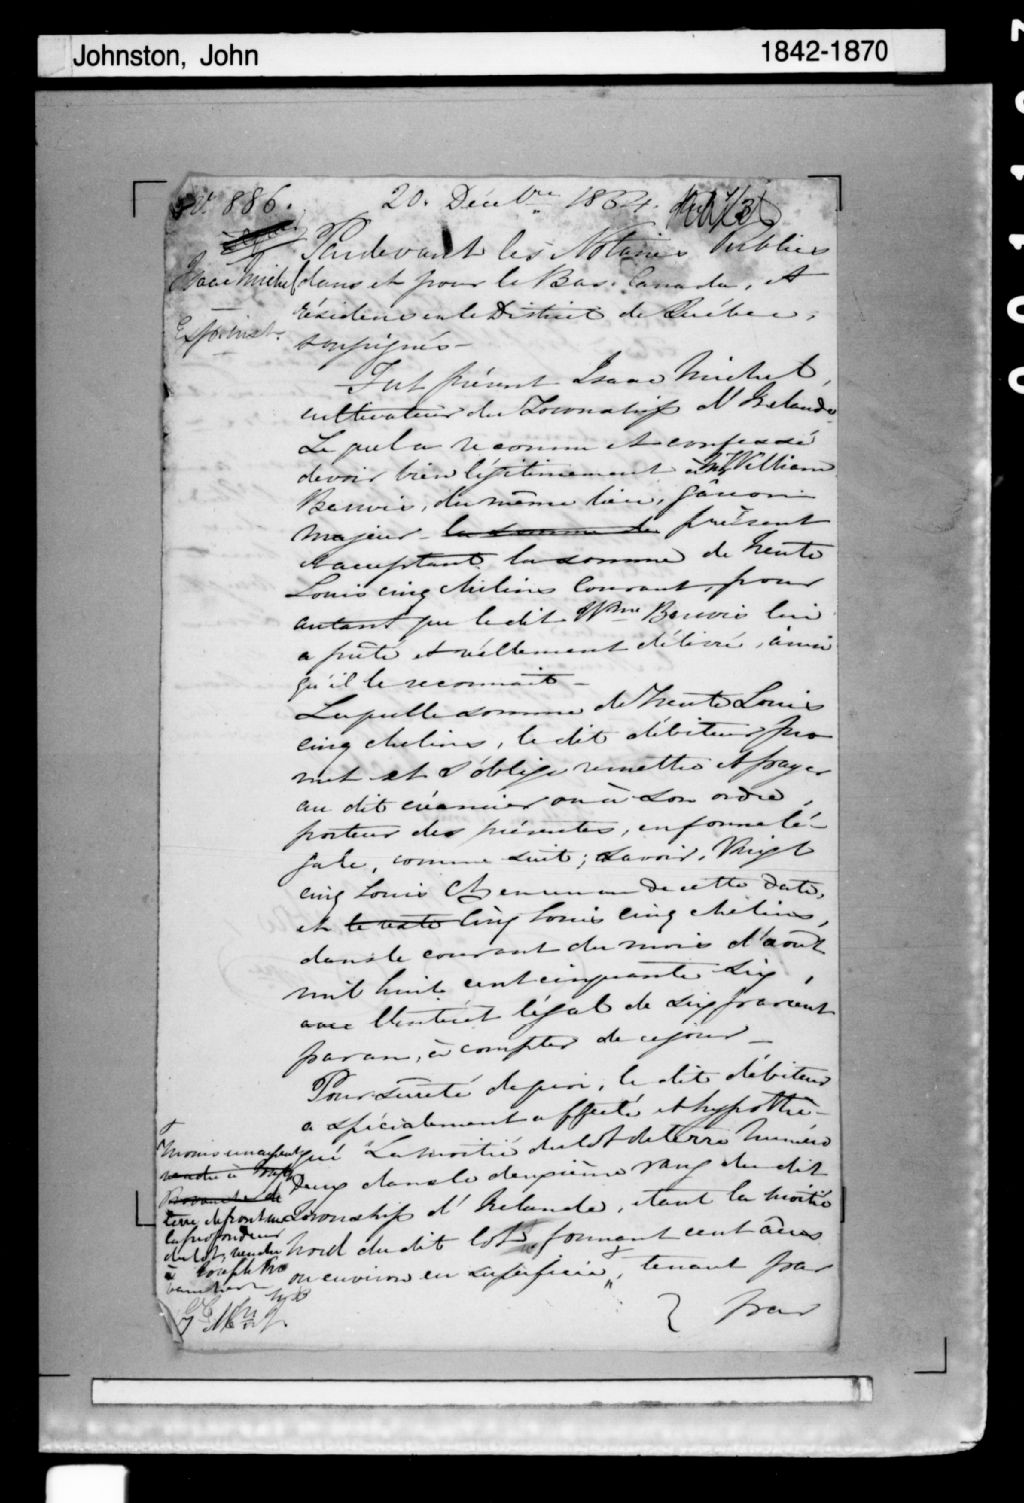 Johnston, John
1842-1870
No. 886.
20. Décebre 1854.
Pardevant les Notaires Publics
Isaac Michel
dans et pour le Bas-Canada, et
résidens en le District de Québec,
soussignés –
Fut présent Isaac Michel,
cultivateur du Township d'Irelande
Lequel a reconnu et confessé
devoir bien légitimement à Mr William
du même lieu, garçon
majeur la somme de présent
et acceptant la somme de trente
Louis cinq chelins Courant, pour
autant que le dit Wme lui
a prêté et réellement délivré, ainsi
qu'il le reconnait –
Laquelle somme de trente Louis
cinq chelins, le dit débiteur pro
met et s'oblige remettre et payer
au dit créancier ou à son ordre,
porteur des présentes, en forme lé-
gale, comme suit; savoir, Vingt
cinq Louis en un an de cette date,
et le reste Cinq Louis cinq chelins,
dans le courant du mois d'août
mil huit cent cinquante six,
avec l'intérêt légal de six par cent
par an, à compter de ce jour –
Pour sûreté de quoi, le dit débiteur
a spécialement affecté et hypothé-
qué La moitié du lot de terre Numéro
Deux dans le deuxième rang du dit
Township d'Irelande, étant la moitié
nord du dit lot, formant cent âcres
ou environ en superficie, tenant par
par
moins un arpent
vendu à
terre de front sur
la profondeur
du lot, vendu
à Joseph